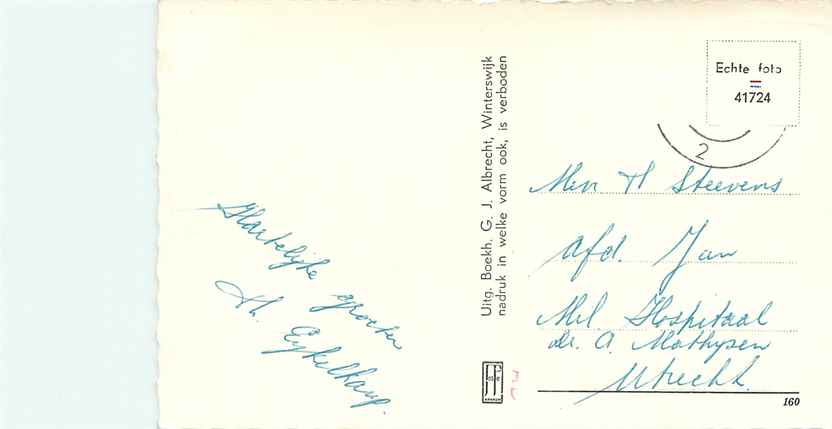 Hartelijke groeten
Th. Eijkelkamp.
Uitg. Boekh. G. J. Albrecht, Winterswijk
nadruk in welke vorm ook, is verboden
Echte foto
41724
2
Th Steevens
afd. Jan
Mil. Hospitaal
Dr. A. Mathysen
Utrecht.
160